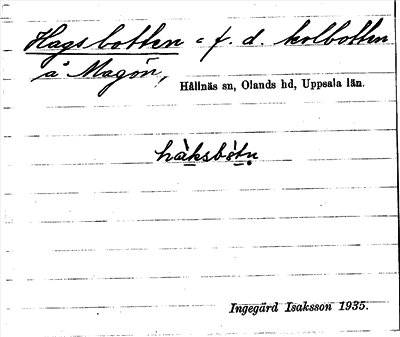 Hagsbotten = f. d. kolbotten
å Magön,
Hållnäs sn, Olands hd, Uppsala län.
hàksbòtn̥
Ingegärd Isaksson 1935.